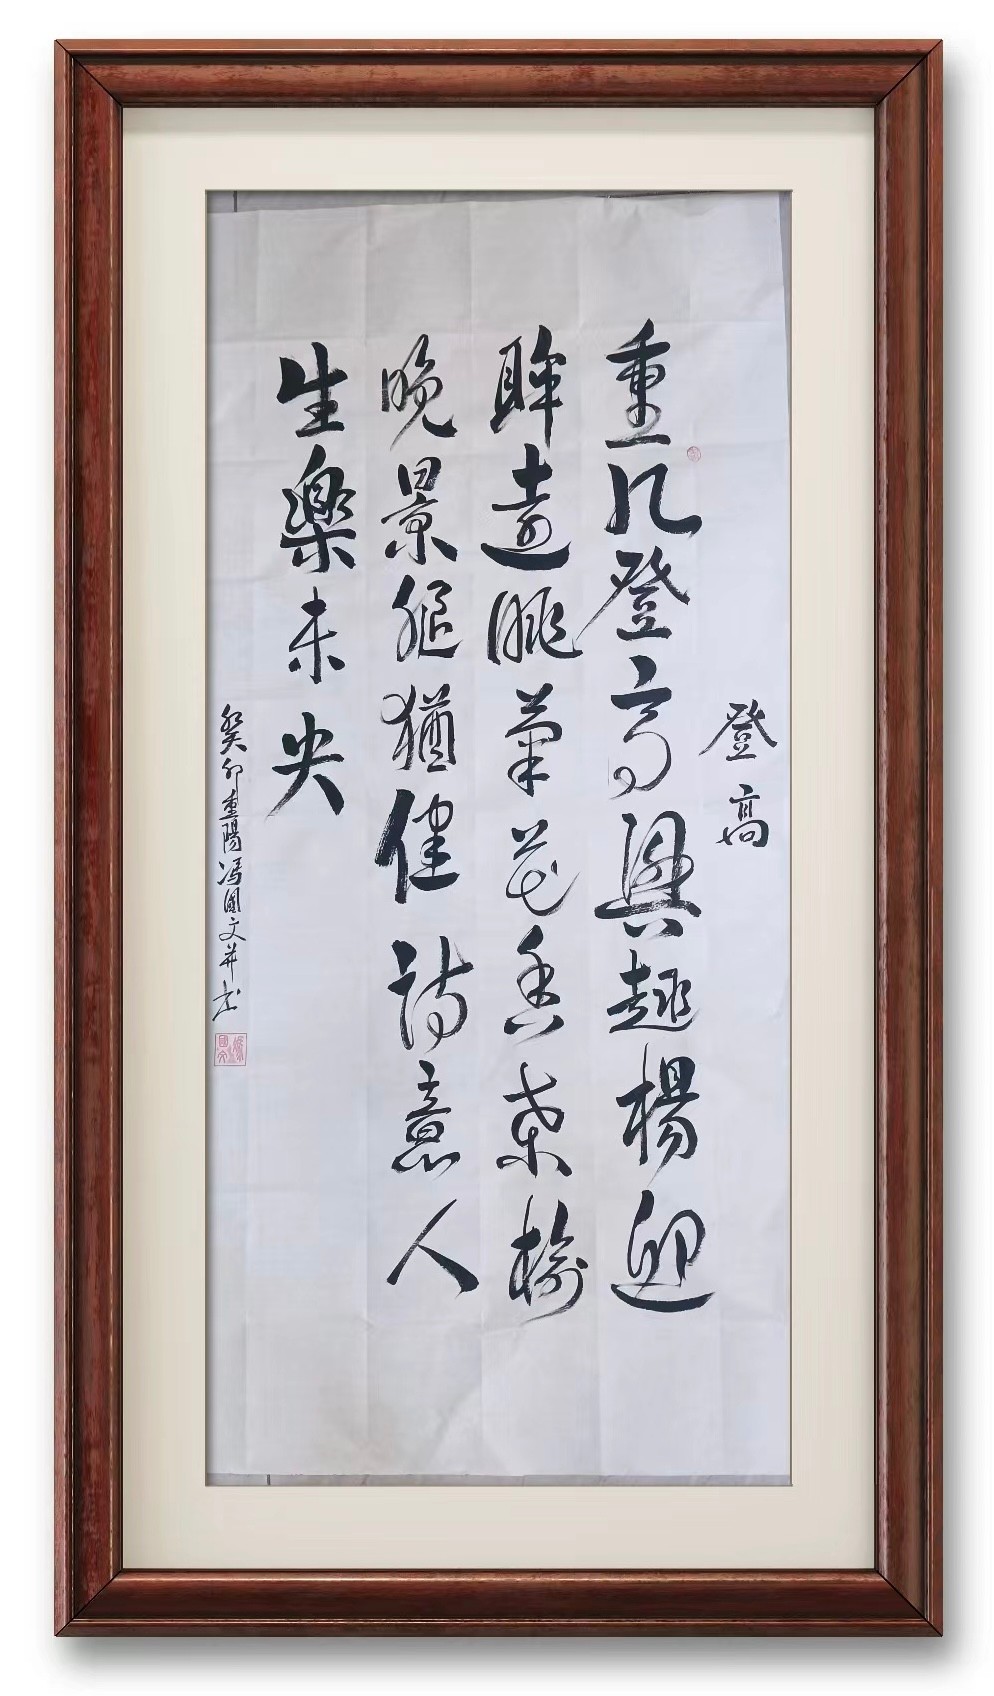 登高
重九登高興趣楊迎
眸遠眺菊花香桑榆
晚景腿猶健詩意人
生樂未央
癸卯重陽馮國文并書